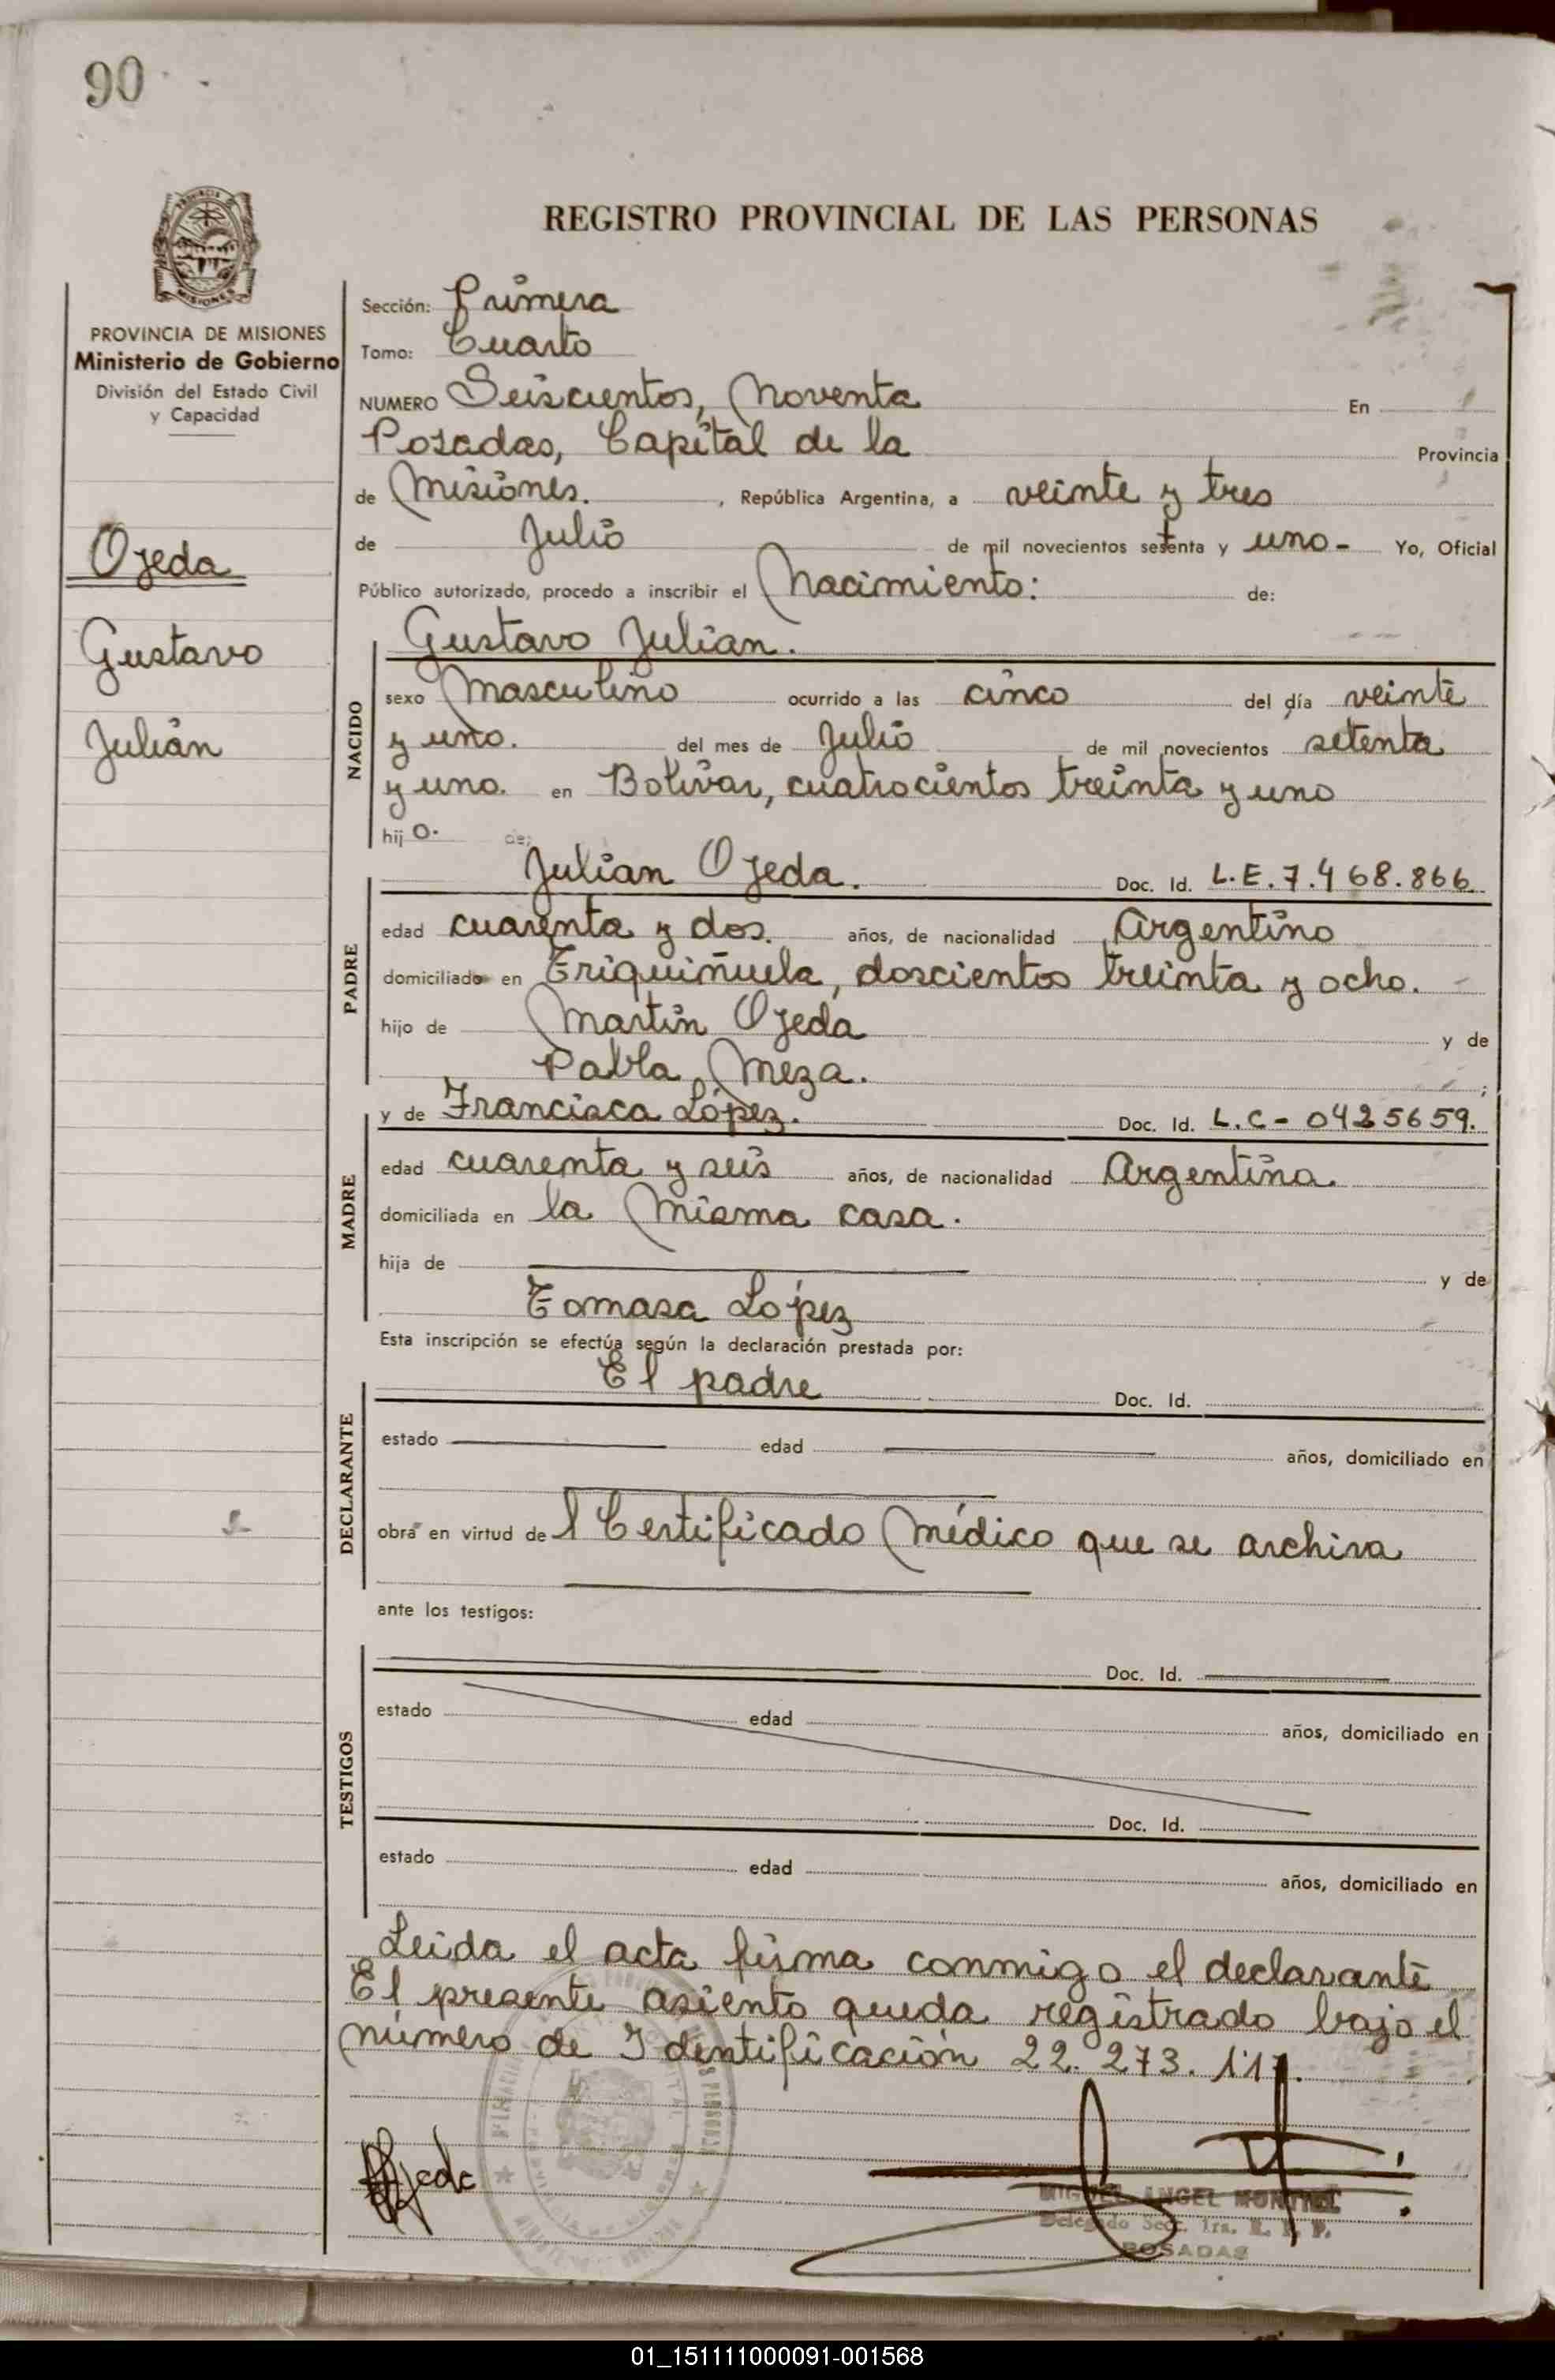 90
REGISTRO PROVINCIAL DE LAS PERSONAS
PROVINCIA DE MISIONES
Ministerio de Gobierno
División del Estado Civil
y Capacidad
Ojeda
Gustavo
Julián
Sección: Primera
Tomo: Cuarto
NUMERO Seiscientos, Noventa En
Posadas, Capital de la Provincia
de Misiones. , República Argentina, a veinte y tres
de Julio de mil novecientos setenta y uno - Yo, Oficial
Público autorizado, procedo a inscribir el Nacimiento: de:
NACIDO
Gustavo Julian.
sexo Masculino ocurrido a las cinco del día veinte
y uno. del mes de Julio de mil novecientos setenta
y uno. en Bolivar, cuatrocientos treinta y uno
hij o. de:
PADRE
Julian Ojeda. Doc. Id. L.E. 7.468.866
edad cuarenta y dos. años, de nacionalidad Argentino
domiciliado en Triquiñuela, doscientos treinta y ocho.
hijo de Martin Ojeda y de
Pabla Meza. ;
MADRE
y de Francisca López. Doc. Id. L.C - 0425659.
edad cuarenta y seis años, de nacionalidad Argentina
domiciliada en la misma casa.
hija de y de
Tomasa López
Esta inscripción se efectúa según la declaración prestada por:
DECLARANTE
El padre Doc. Id.
estado edad años, domiciliado en
obra en virtud de l Certificado Médico que se archiva
ante los testigos:
TESTIGOS
Doc. Id.
estado edad años, domiciliado en
Doc. Id.
estado edad años, domiciliado en
Leida el acta firma conmigo el declarante
El presente asiento queda registrado bajo el
número de Identificación 22.273.117.
Ojeda
MIGUEL ANGEL MONTIEL
Delegado Secc. 1ra. R. P. P.
POSADAS
01_151111000091-001568